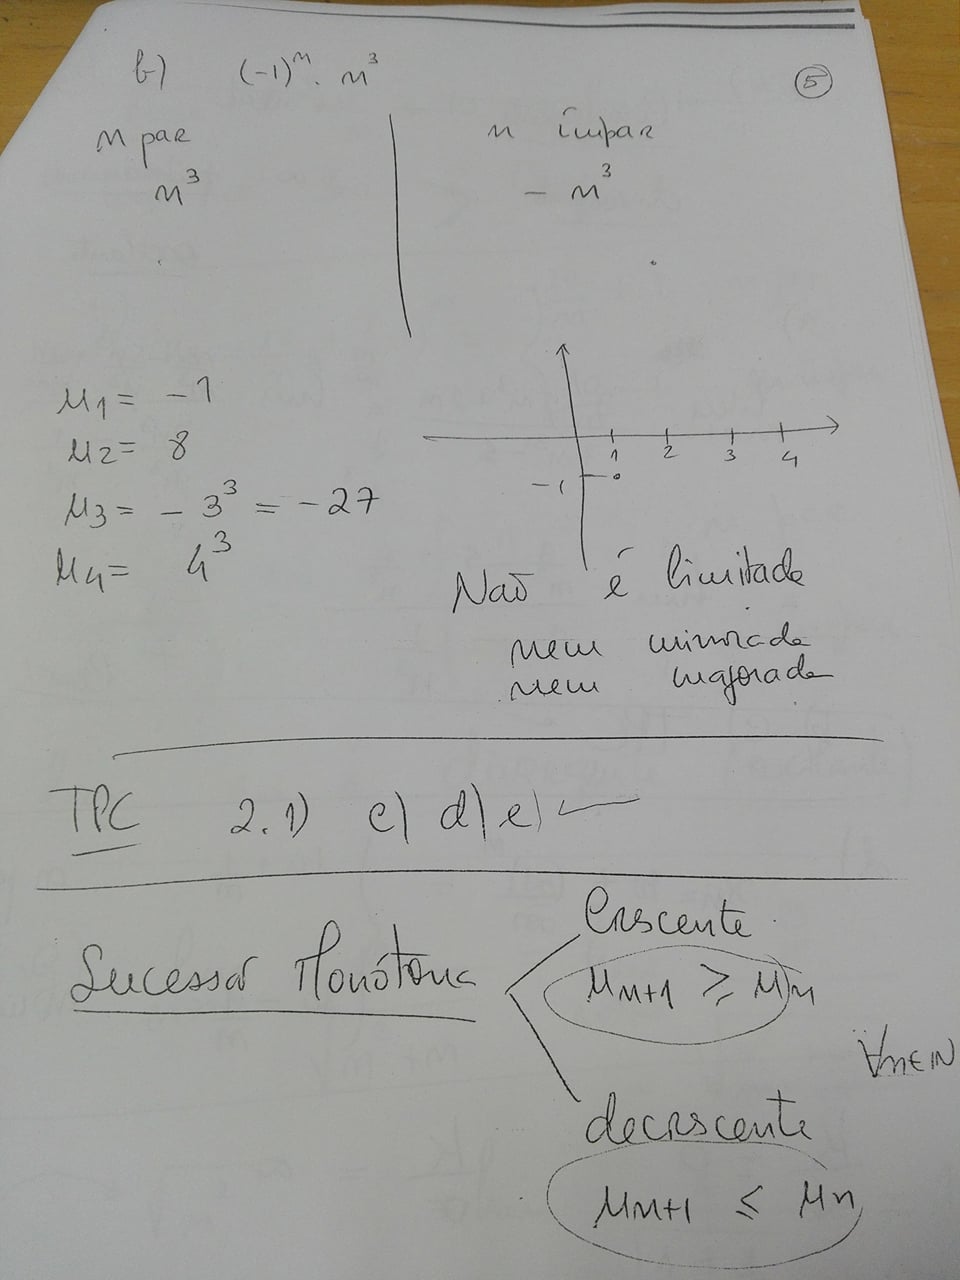 b) (-1)^n . n^3
5
n par
n ímpar
n^3
- n^3
u1 = -1
u2 = 8
u3 = - 3^3 = -27
u4 = 4^3
1 2 3 4
-1
Não é limitada
nem minorada
nem majorada
TPC 2.1) c) d) e)
Crescente
Sucessão Monótona
un+1 ≥ un
∀n∈IN
decrescente
un+1 ≤ un